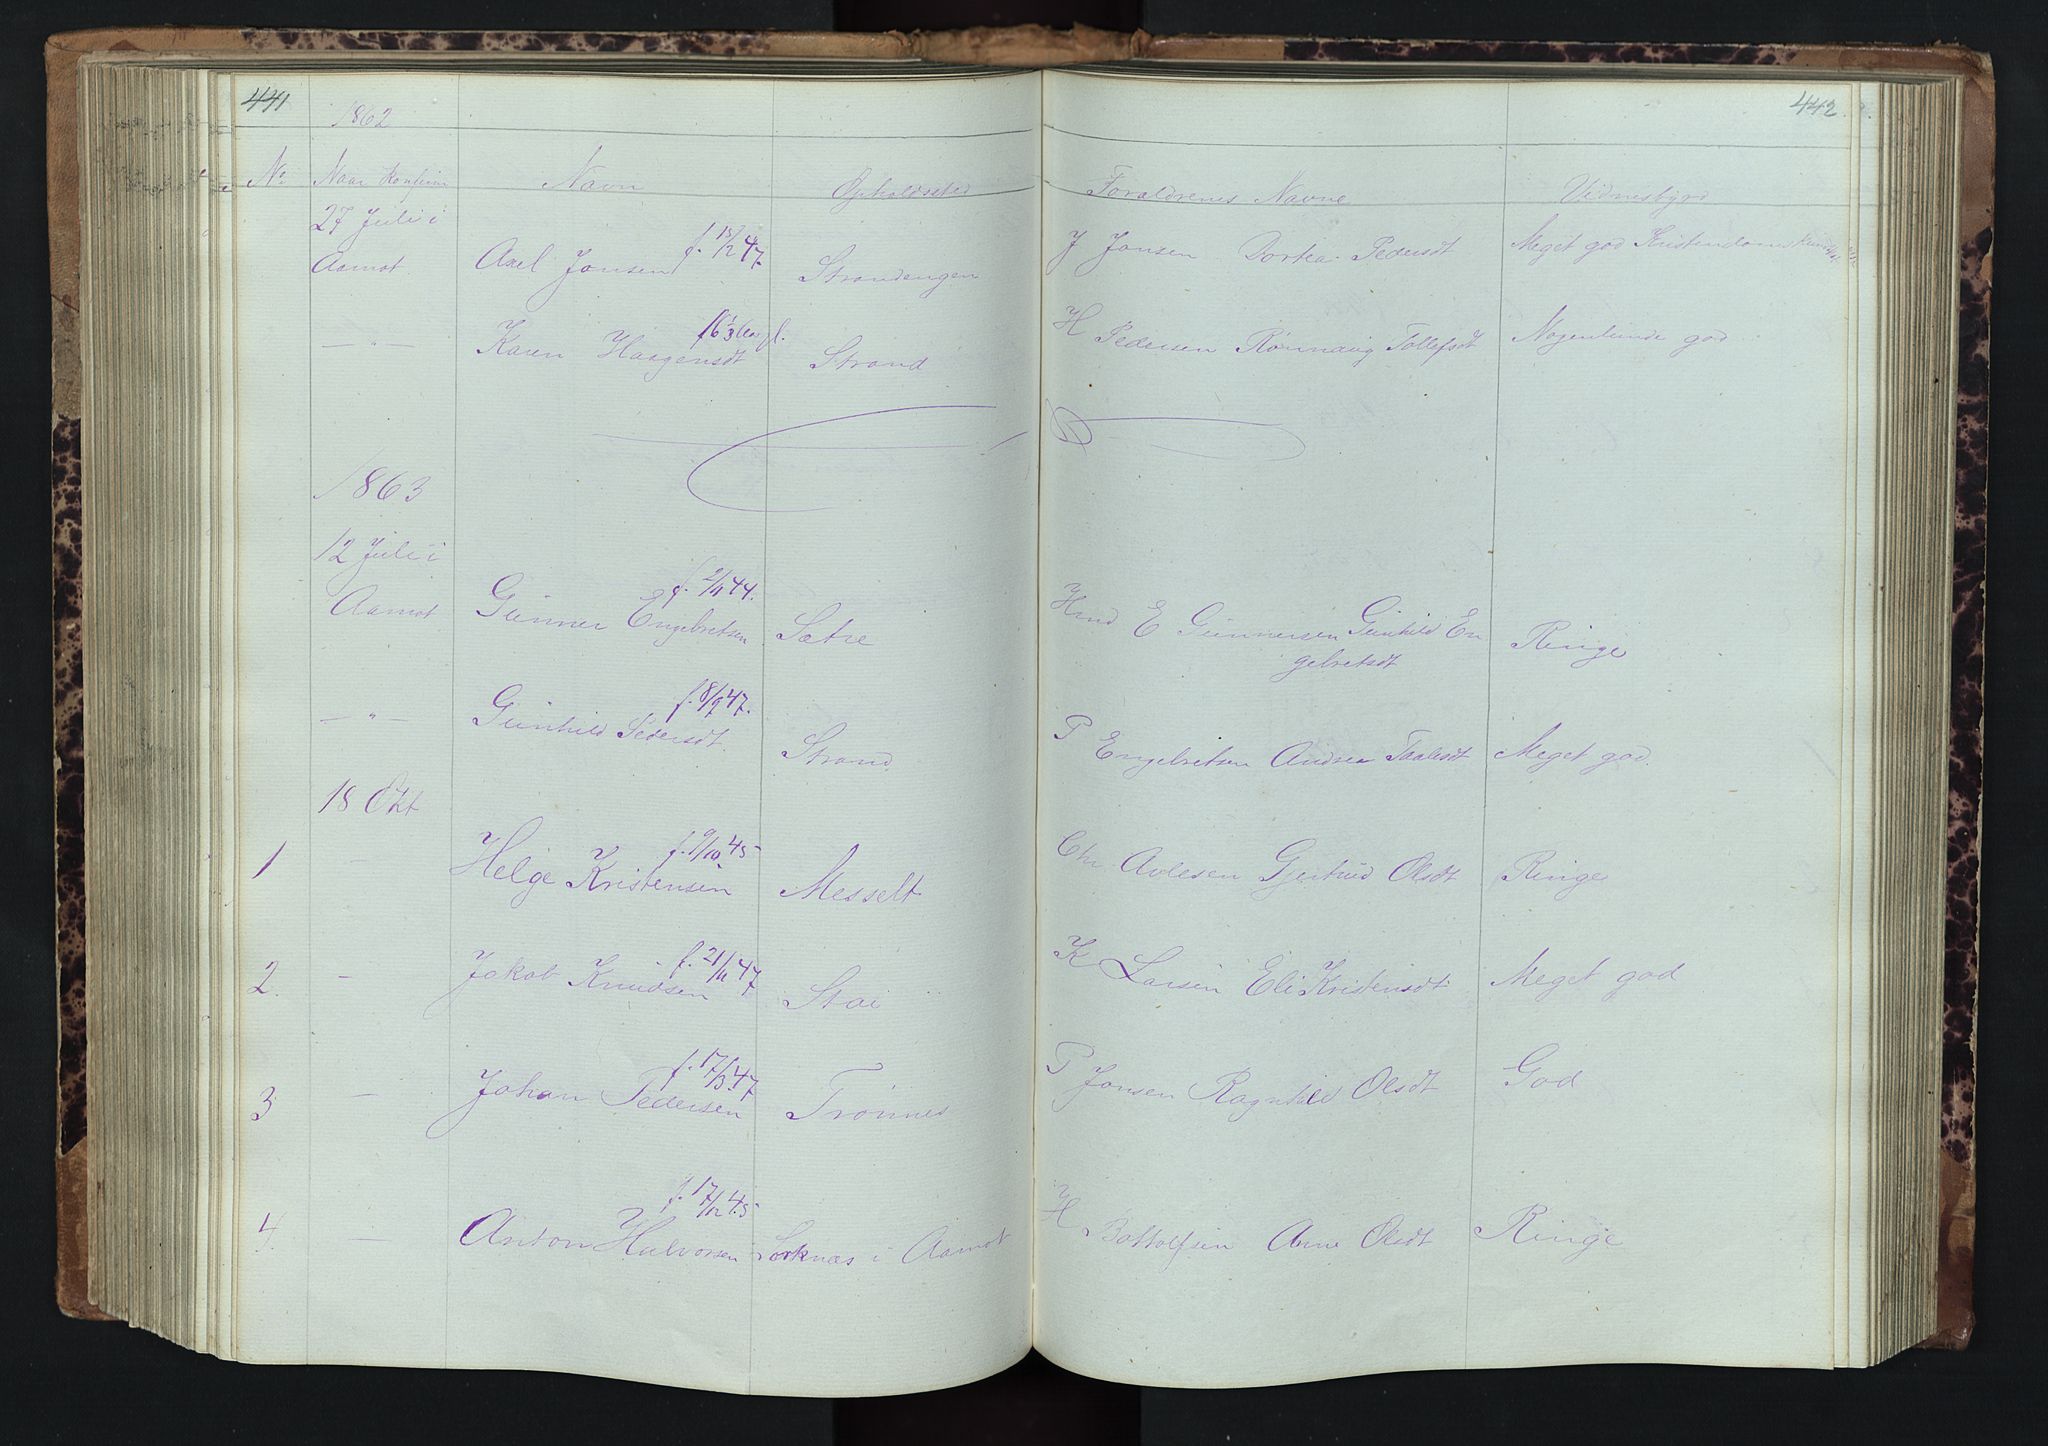 441
1862
No Naar Konfirm Navn Opholdssted
27 Juli i
Aamot Axel Jonsen f. 15/2 47. Strandengen
— " — Karen Haagensdt 16 1/3 Aar gl. Strand
1863
12 Juli i
Aamot Gunner Engebretsen f. 2/11 44. Sætre
— " — Gunhild Pedersdt. f. 8/9 47. Strand
18 Okt
1 — Helge Kristensen f. 9/10 45 Messelt
2. — Jakob Knudsen f. 21/11 47 Stai
3 — Johan Pedersen f. 17/3 47 Trønnes
4. — Anton Halvorsen f. 17/12 45 Sorknæs i Aamot
442
Forældrenes Navne Vidnesbyrd
J Jonsen Dortea Pedersdt Meget god Kristendoms
H Pedersen Rønnaug Tollefsdt Nogenlunde god
E Gunnersen Gunhild En
gebretsdt Ringe
P Engebretsen Andrea Paalsdt Meget god.
Chr Avlesen Gjertrud Olsdt Ringe
K Larsen Eli Kristensdt Meget god
P Jonsen Ragnhild Olsdt God
H Bottolfsen Anne Olsdt Ringe